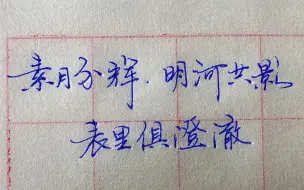 素月分辉.明河共影
表里俱澄澈